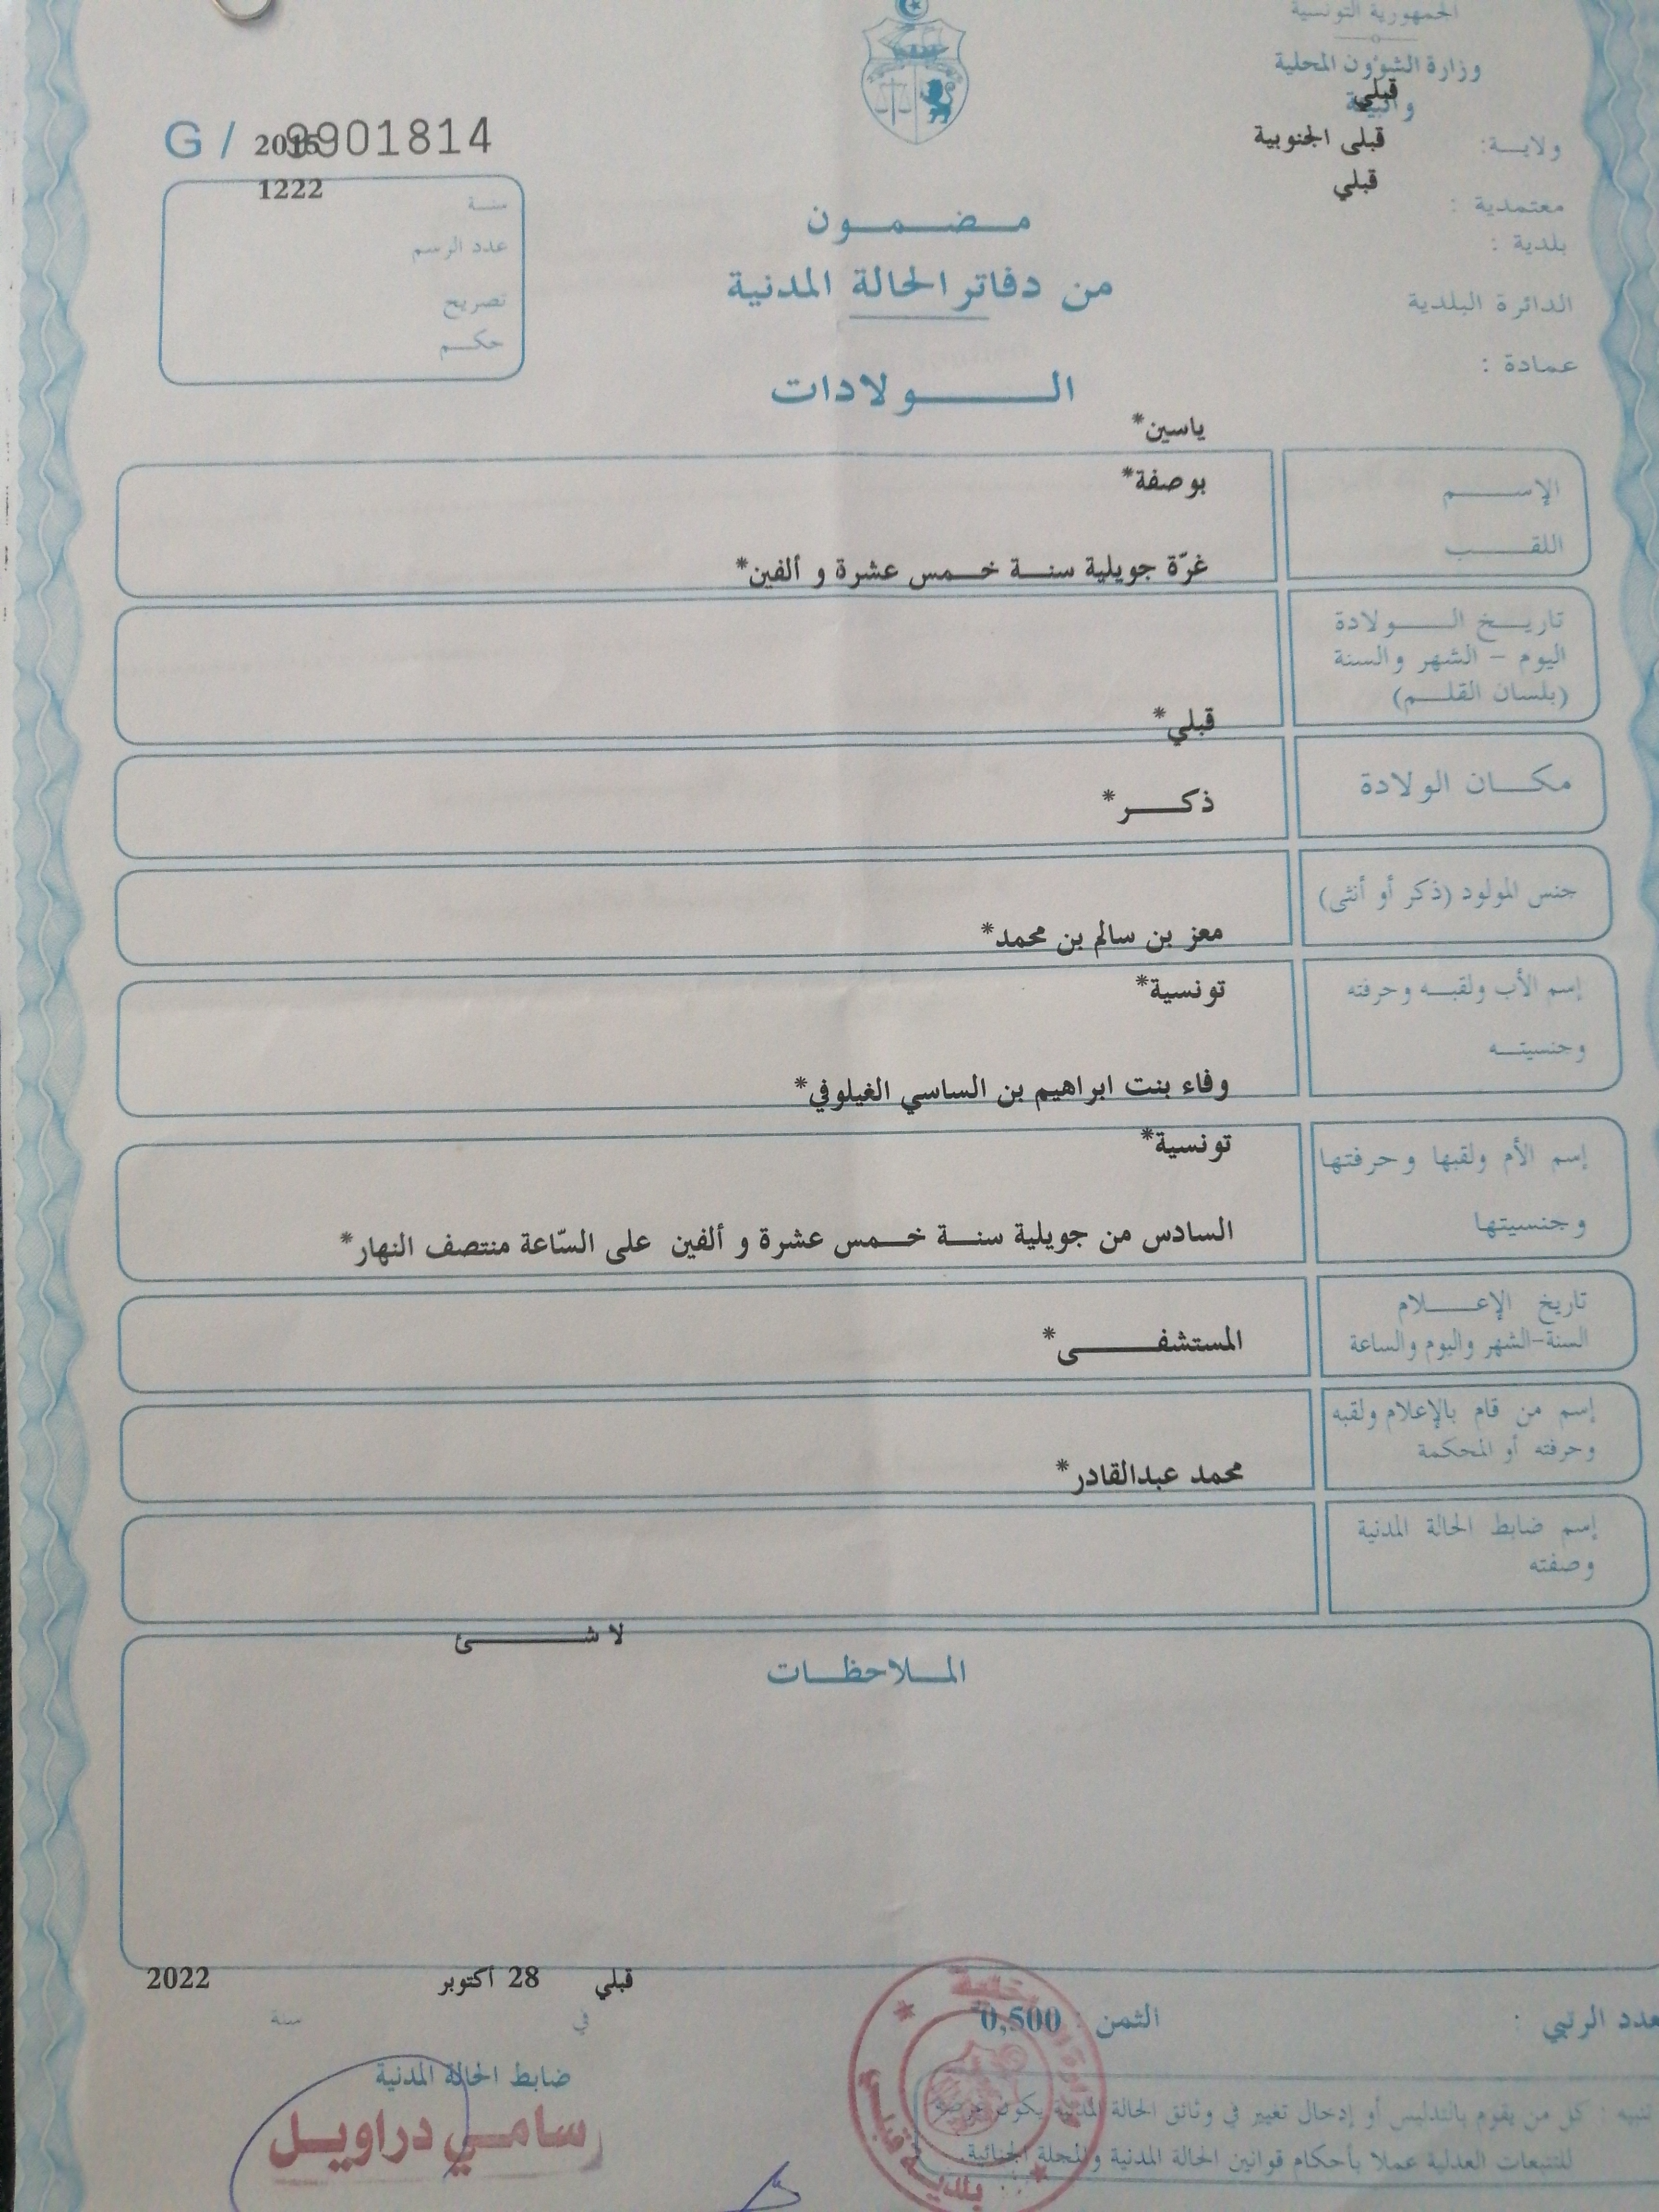 الجمهورية التونسية
وزارة الشؤون المحلية
والبيئة
قبلي
ولاية:
قبلى الجنوبية
معتمدية :
قبلي
بلدية :
الدائرة البلدية
عمادة :
G / 9901814
2015
1222
سنة
عدد الرسم
تصريح
حكم
مضمون
من دفاتر الحالة المدنية
الولادات
ياسين*
الإسم
بوصفة*
اللقب
غرّة جويلية سنة خمس عشرة و ألفين*
تاريخ الولادة
اليوم - الشهر والسنة
(بلسان القلم)
قبلي*
مكان الولادة
ذكر*
جنس المولود (ذكر أو أنثى)
معز بن سالم بن محمد*
إسم الأب ولقبه وحرفته
تونسية*
وجنسيته
وفاء بنت ابراهيم بن الساسي الغيلوفي*
تونسية*
إسم الأم ولقبها وحرفتها
وجنسيتها
السادس من جويلية سنة خمس عشرة و ألفين على السّاعة منتصف النهار*
تاريخ الإعلام
السنة-الشهر واليوم والساعة
المستشفى*
إسم من قام بالإعلام ولقبه
وحرفته أو المحكمة
محمد عبدالقادر*
إسم ضابط الحالة المدنية
وصفته
لا شئ
الملاحظات
قبلي 28 أكتوبر 2022
في سنة
عدد الرتبي :
الثمن : 0,500
ضابط الحالة المدنية
سامي دراويل
بلدية قبلي
تنبيه : كل من يقوم بالتدليس أو إدخال تغيير في وثائق الحالة المدنية يكون عرضة
للتتبعات العدلية عملا بأحكام قوانين الحالة المدنية والمجلة الجنائية.